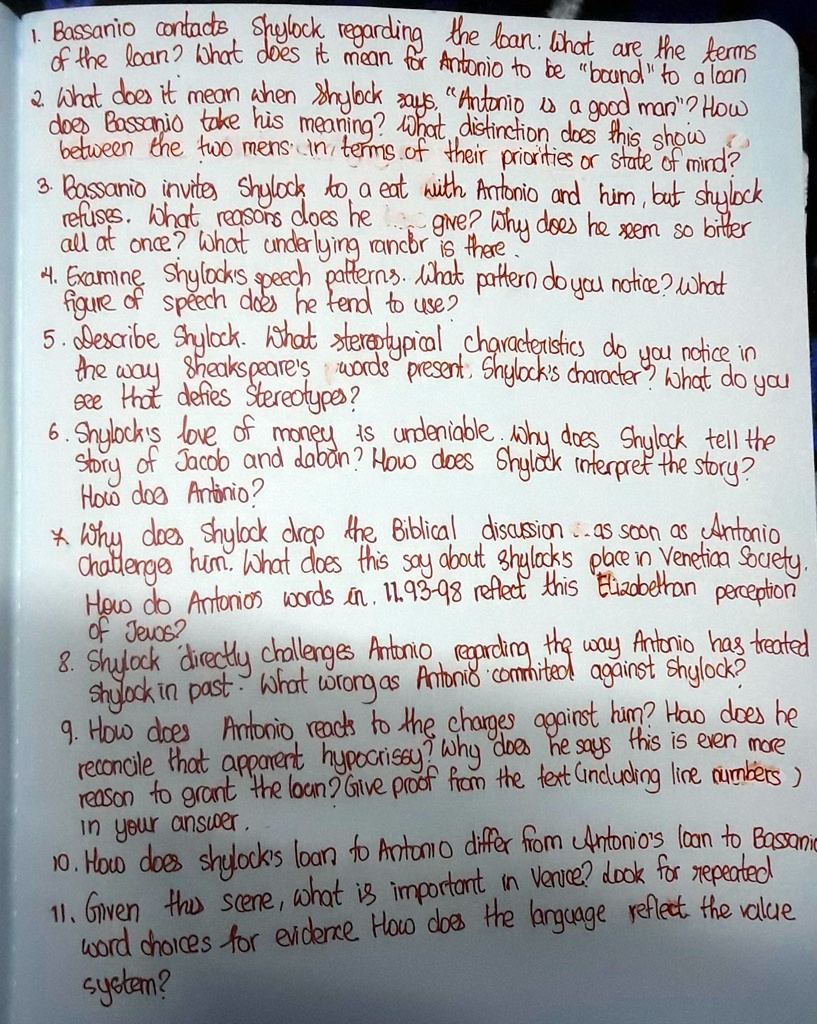 1. Bassanio contacts Shylock regarding the loan: What are the terms
of the loan? What does it mean for Antonio to be "bound" to a loan
2. What does it mean when Shylock says, "Antonio is a good man"? How
does Bassanio take his meaning? What distinction does this show
between the two mens in terms of their priorities or state of mind?
3. Bassanio invites Shylock to a eat with Antonio and him, but shylock
refuses. What reasons does he give? Why does he seem so bitter
all at once? What underlying rancor is there.
4. Examine Shylock's speech patterns. What pattern do you notice? What
figure of speech does he tend to use?
5. Describe Shylock. What stereotypical characteristics do you notice in
the way Sheakspeare's words present Shylock's character? What do you
see that defies Stereotypes?
6. Shylock's love of money is undeniable. Why does Shylock tell the
Story of Jacob and Laban? How does Shylock interpret the story?
How does Antinio?
* Why does Shylock drop the Biblical discussion .. as soon as Antonio
challenges him. What does this say about Shylock's place in Venetian Society.
How do Antonios words in. 11.93-98 reflect this Elizabethan perception
of Jews?
8. Shylock directly challenges Antonio regarding the way Antonio has treated
Shylock in past. What wrong as Antonio commited against Shylock?
9. How does Antonio reacts to the charges against him? How does he
reconcile that apparent hypocrissy? Why does he says this is even more
reason to grant the loan? Give proof from the text (including line numbers)
in your answer.
10. How does shylock's loan to Antonio differ from Antonio's loan to Bassanio
11. Given this scene, what is important in Venice? Look for repeated
word choices for evidence How does the language reflect the value
system?